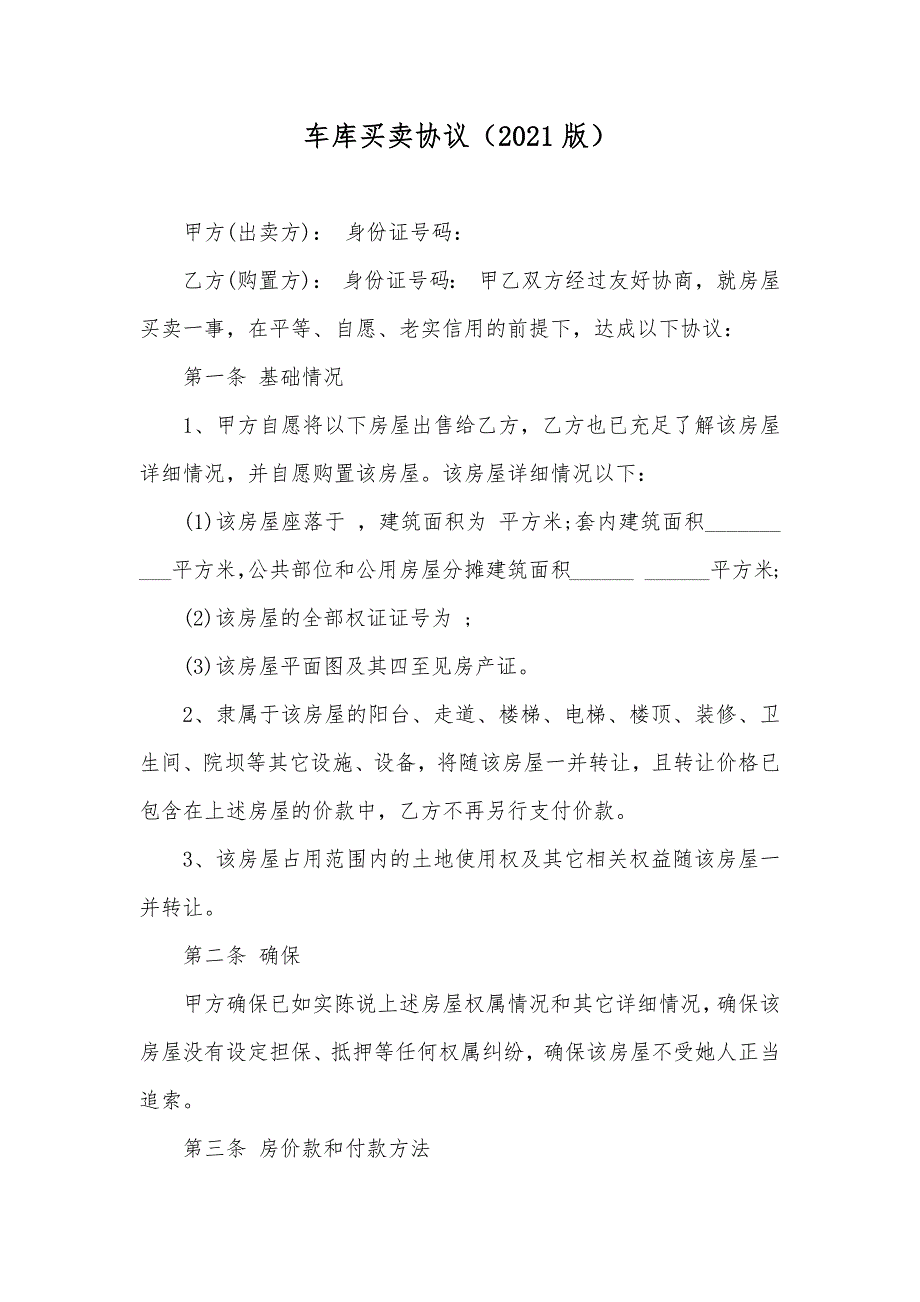 车库买卖协议（2021版）
甲方(出卖方)： 身份证号码：
乙方(购置方)： 身份证号码： 甲乙双方经过友好协商，就房屋
买卖一事，在平等、自愿、老实信用的前提下，达成以下协议：
第一条 基础情况
1、甲方自愿将以下房屋出售给乙方，乙方也已充足了解该房屋
详细情况，并自愿购置该房屋。该房屋详细情况以下：
(1)该房屋座落于 ，建筑面积为 平方米;套内建筑面积_______
___平方米,公共部位和公用房屋分摊建筑面积______ ______平方米;
(2)该房屋的全部权证证号为 ;
(3)该房屋平面图及其四至见房产证。
2、隶属于该房屋的阳台、走道、楼梯、电梯、楼顶、装修、卫
生间、院坝等其它设施、设备，将随该房屋一并转让，且转让价格已
包含在上述房屋的价款中，乙方不再另行支付价款。
3、该房屋占用范围内的土地使用权及其它相关权益随该房屋一
并转让。
第二条 确保
甲方确保已如实陈说上述房屋权属情况和其它详细情况，确保该
房屋没有设定担保、抵押等任何权属纠纷，确保该房屋不受她人正当
追索。
第三条 房价款和付款方法